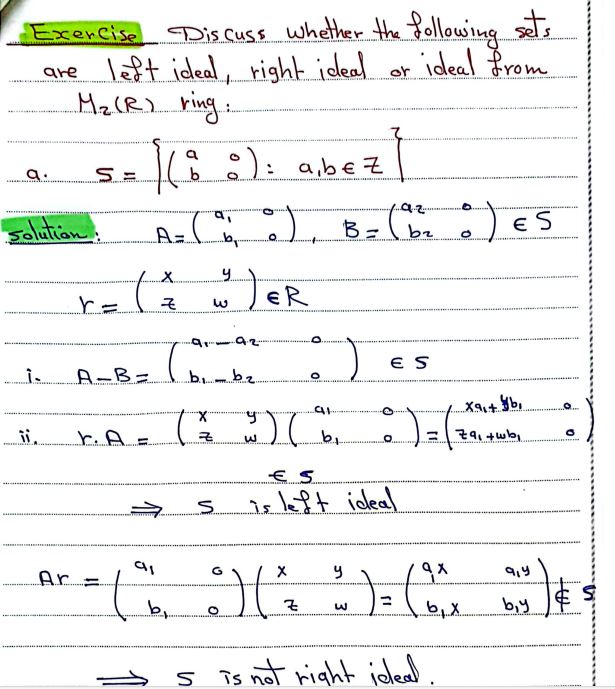 Exercise Discuss whether the following sets
are left ideal, right ideal or ideal from
M₂(R) ring:
a. S = {(a 0; b 0) : a,b ∈ Z}
solution: A = (a₁ 0; b₁ 0), B = (a₂ 0; b₂ 0) ∈ S
r = (x y; z w) ∈ R
i. A-B = (a₁-a₂ 0; b₁-b₂ 0) ∈ S
ii. r.A = (x y; z w)(a₁ 0; b₁ 0) = (xa₁+yb₁ 0; za₁+wb₁ 0)
∈ S
⇒ S is left ideal
Ar = (a₁ 0; b₁ 0)(x y; z w) = (a₁x a₁y; b₁x b₁y) ∉ S
⇒ S is not right ideal.